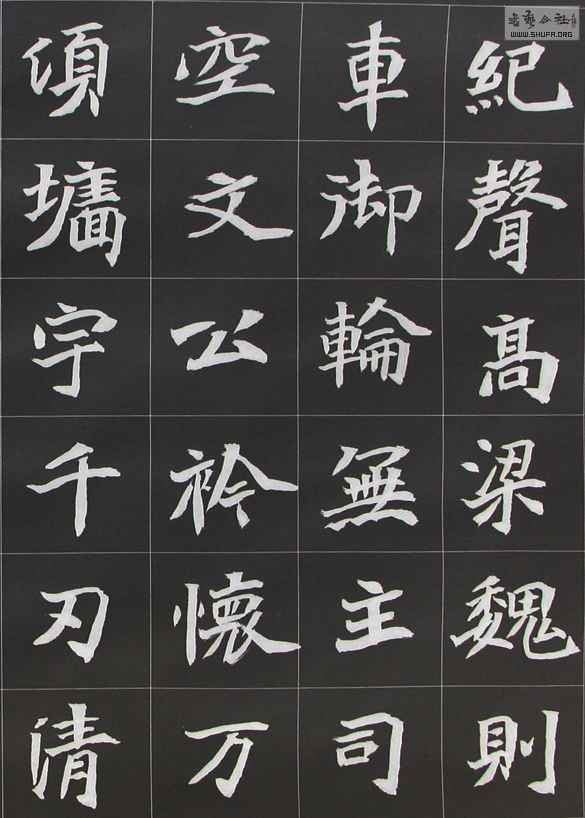 書藝公社
WWW.SHUFA.ORG
紀聲髙梁魏則
車御輪無主司
空文公衿懷万
頃墻宇千刃清